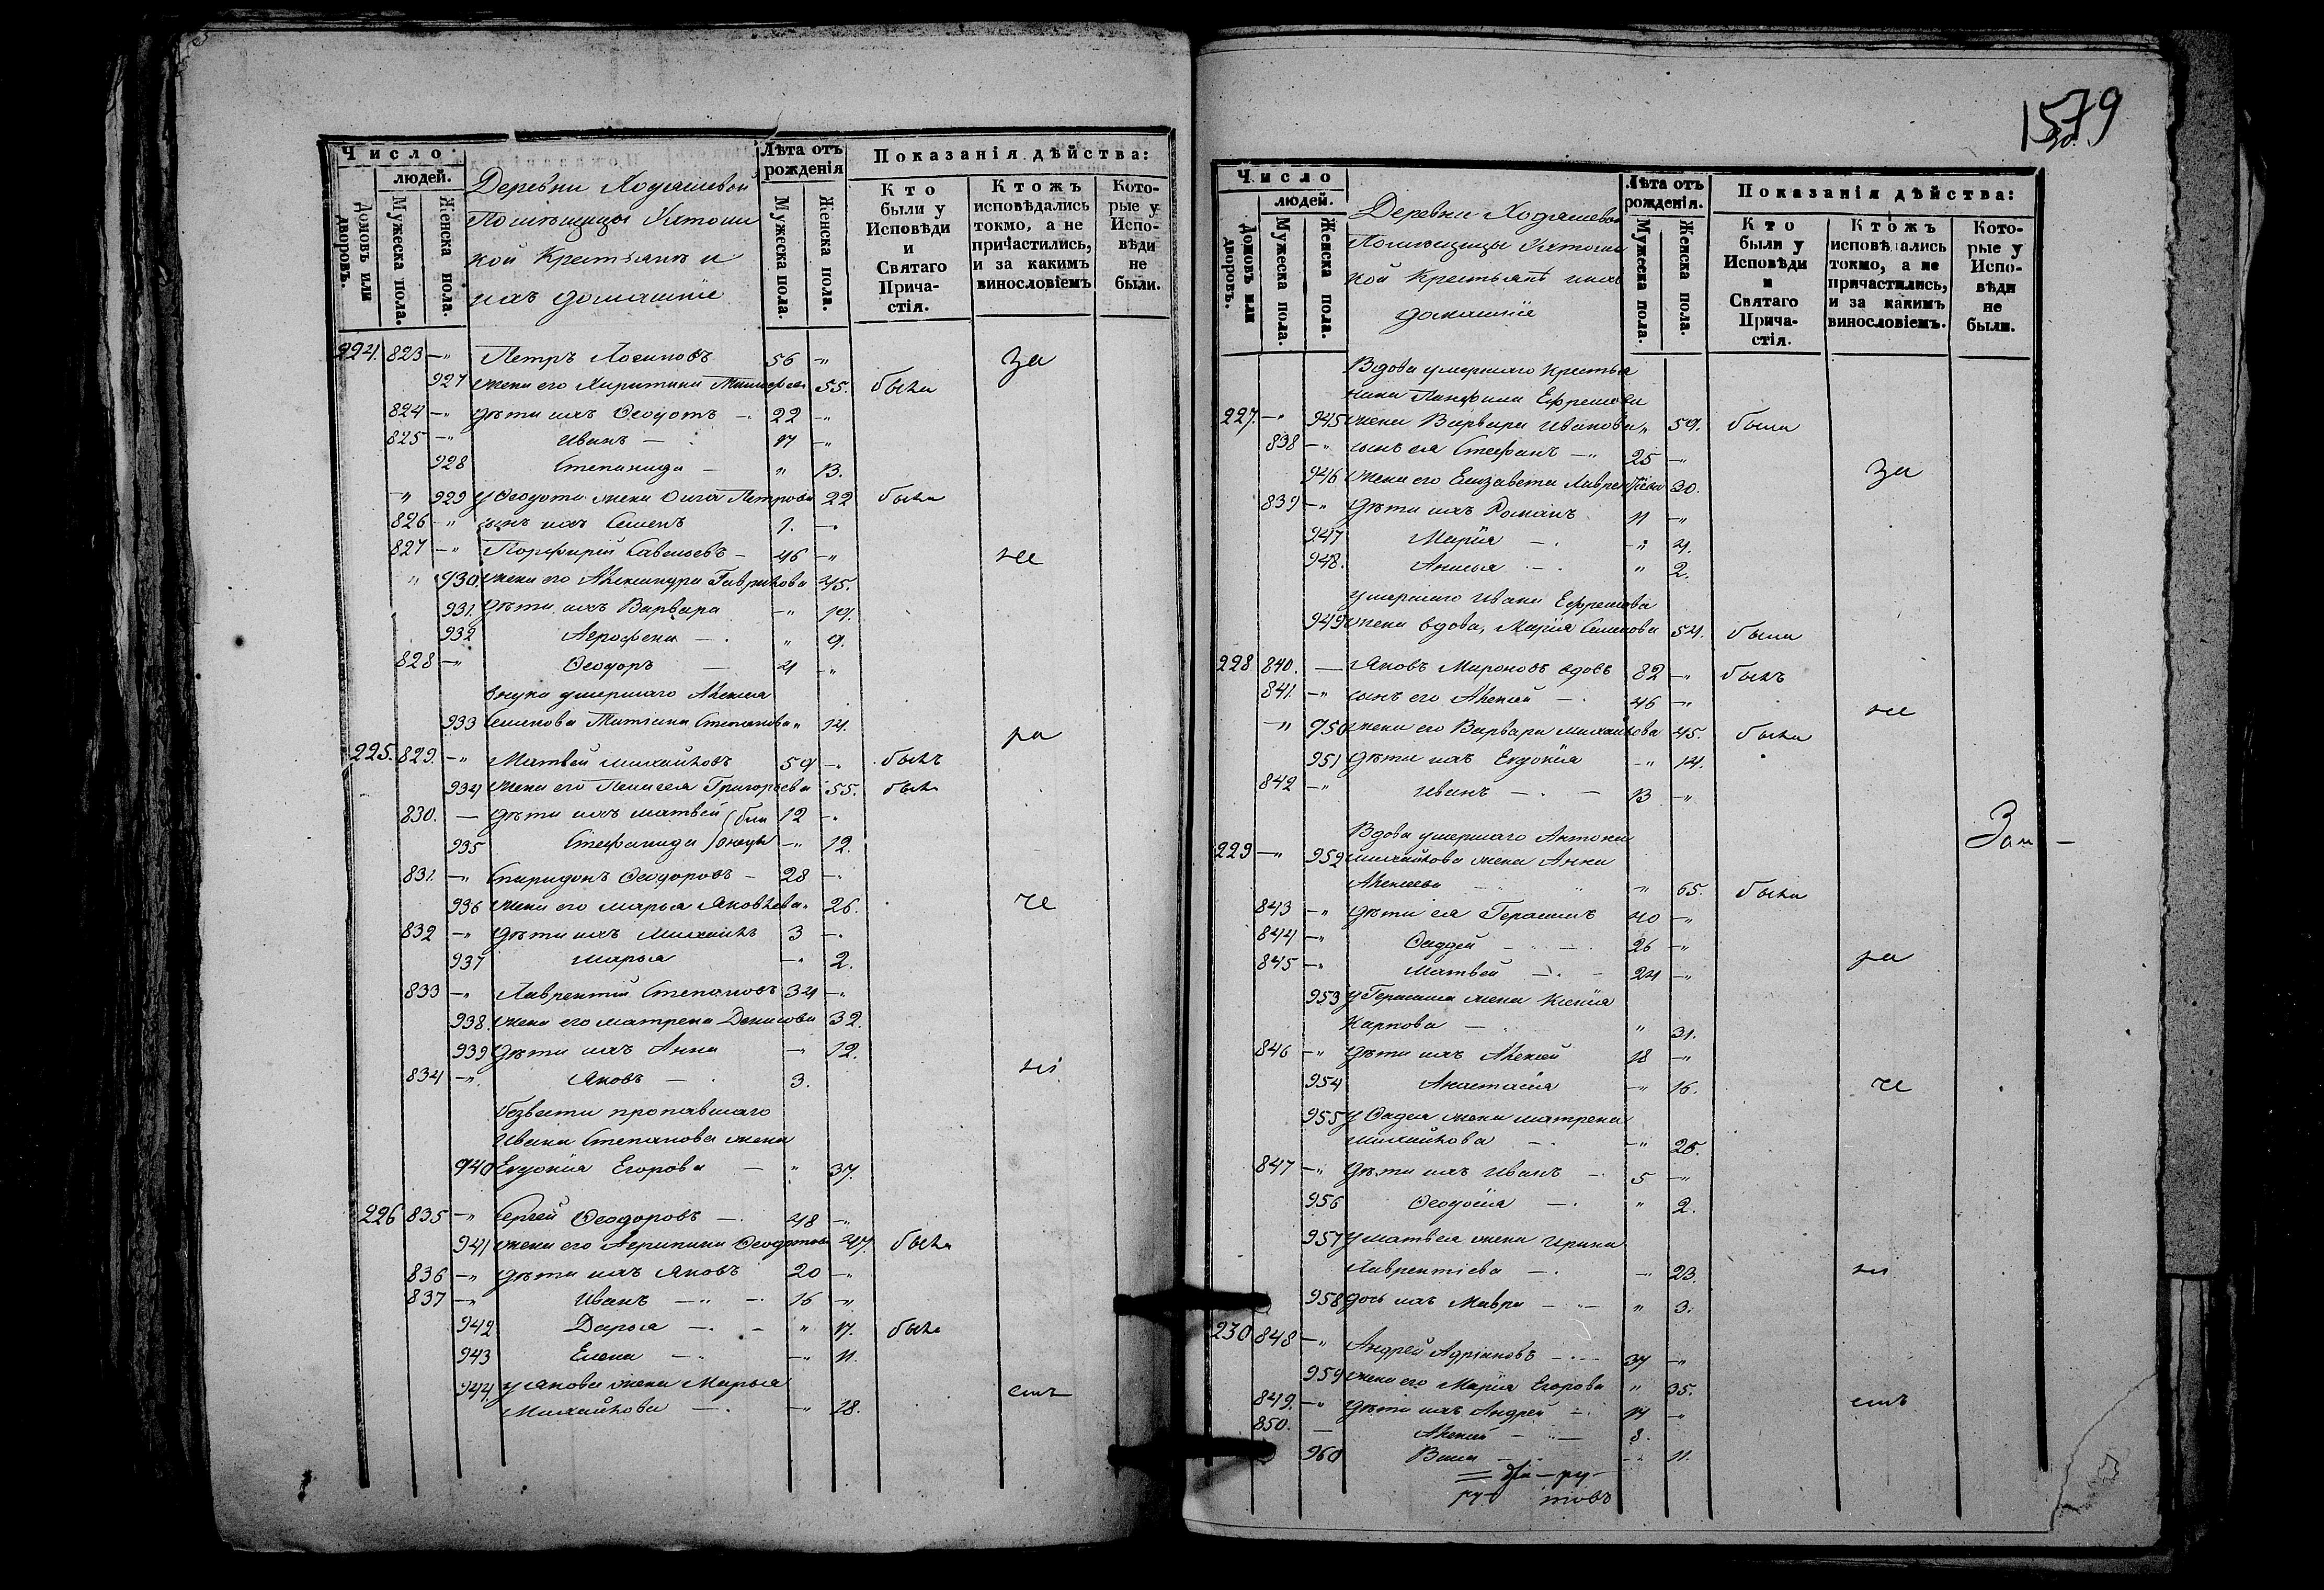 Число
людей.
Домовъ или дворовъ.
Мужеска пола.
Женска пола.
Деревни
Помѣщицы
кой Крестьянѣ и
ихъ домашніе
Лѣта отъ рожденія
Мужеска пола.
Женска пола.
Показанія дѣйства:
Кто были у Исповѣди и Святаго Причастія.
Ктожъ исповѣдались токмо, а не причастились, и за какимъ винословіемъ
Которые у Исповѣди не были.
224. 823 —" Петръ Логиновъ 56 —" за
927 жена его 55. была
824 —" дѣти ихъ Ѳеодотъ — 22 —"
825 —" Иванъ — 17 —"
928 Степанида — " 13.
—" 929 у Ѳеодота жена Ольга Петрова 22 была
826 —" сынъ ихъ Семенъ 1. —"
827 —" Порфирій Савельевъ — 46 —" не
" 930. жена его Александра Гаврилова 45.
931. дѣти ихъ Варвара —" 19.
932 Агрофена — " 9.
828 —" Ѳеодоръ — 4 —"
внука умершаго Алексея
933 Семенова Степанова " 14. ра
225. 829. —" Матвей Михайловъ 59 —" былъ
934 жена его Пелагея Григорьева 55. была
830. — дѣти ихъ Матвей (бли 12 —"
935 Стефанида )знецы —" 12.
831. —" Спиридонъ Ѳеодоровъ — 28 —"
936 жена его Марья Яковлева " 26. че
832 —" дѣти ихъ Михаилъ 3 —"
937 Марья —" 2.
833 —" Лаврентій Степановъ 34 —"
938. жена его Матрена Денисова 32.
939 дѣти ихъ Анна —" 12.
834 —" Яковъ — 3. ні
безвести пропавшаго
Ивана Степанова жена
940 Евдокія Егорова — " 37.
226 835 —" Сергей Ѳеодоровъ — 48 —"
941 жена его Агрипина 47. была
836 —" дѣти ихъ Яковъ 20 —"
837 —" Иванъ — 16 —"
942 Дарья — " 17. была
943 Елена — —" 11.
944. у Якова жена Марья
Михайлова — —" 18. емъ
1579
Число
людей.
Домовъ или дворовъ.
Мужеска пола.
Женска пола.
Деревни
Помѣщицы
кой Крестьянѣ ихъ
домашніе
Лѣта отъ рожденія.
Мужеска пола.
Женска пола.
Показанія дѣйства:
Кто были у Исповѣди и Святаго Причастія.
Ктожъ исповѣдались токмо, а не причастились, и за какимъ винословіемъ.
Которые у Исповѣди не были.
Вдова умершаго крестья
нина Панфила Ефремова
227. —" 945 жена Варвара Иванова " 59. была
838 —" сынъ ея Стефанъ —" 25 —"
946 жена его Елизавета Лаврентіева 30. за
839 —" дѣти ихъ Романъ 11 —"
947 Марія — —" 4.
948. Анисья — " 2.
умершаго Ивана Ефремова
949 жена вдова, Марія Семенова 54. была
228 840. — Яковъ Мироновъ вдовъ 82 —" былъ
841. —" сынъ его Алексей — 46 —" не
—" 950 жена его Варвара Михайлова 45. была
951 дѣти ихъ Евдокія —" 14.
842 —" Иванъ — 13 —"
Вдова умершаго Антона
229 —" 952 Михайлова жена Анна
Алексеева — —" 65. была
843 —" дѣти ея Герасимъ 40 —"
844 —" Ѳаддей — 26 —"
845 —" Матвей — 24 —" ра
953 у Герасима жена Ксенія
Карпова — " 31.
846 —" дѣти ихъ Алексей 18 —"
954 Анастасія —" 16. че
955 у Ѳадея жена Матрена
Михайлова — —" 26.
847 —" дѣти ихъ Иванъ — 5 —"
956 Ѳеодосія — " 2.
957 у Матвея жена Ирина
Лаврентіева — —" 23. ні
958 дочь ихъ Мавра — " 3.
230 848 —" Андрей Адріановъ — 37 —"
959 жена его Марія Егорова " 35.
849. —" дѣти ихъ Андрей — 14 —" емъ
850. — Алексей — 8.
960 — 11.